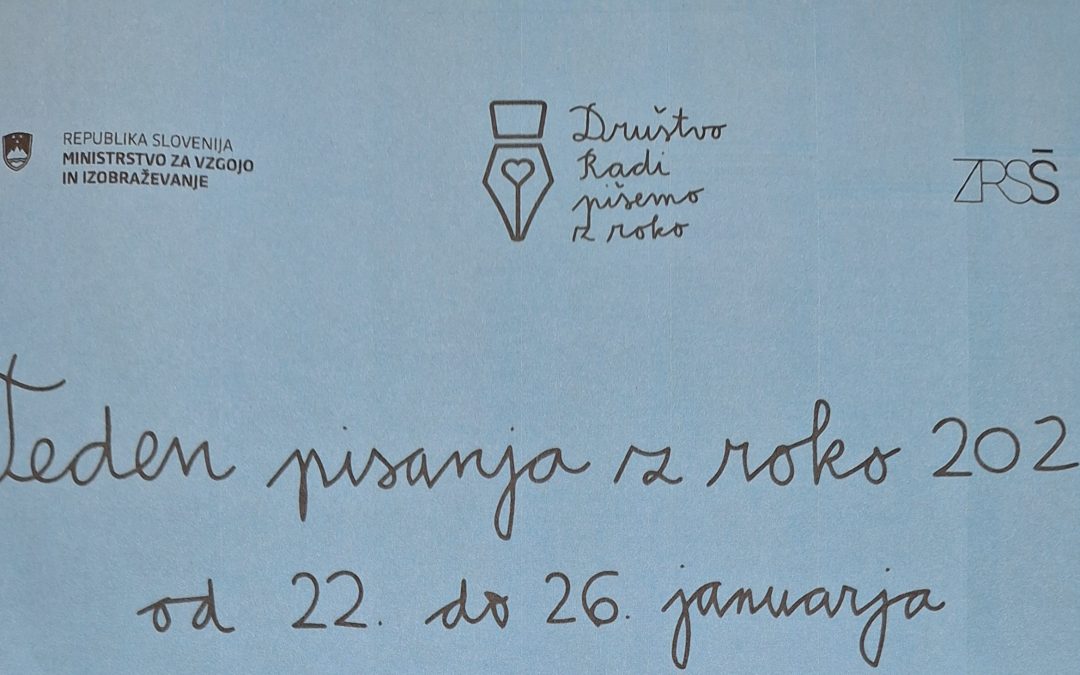 REPUBLIKA SLOVENIJA
MINISTRSTVO ZA VZGOJO
IN IZOBRAŽEVANJE
Društvo
Radi
pišemo
z roko
ZRSŠ
Teden pisanja z roko 202
od 22. do 26. januarja